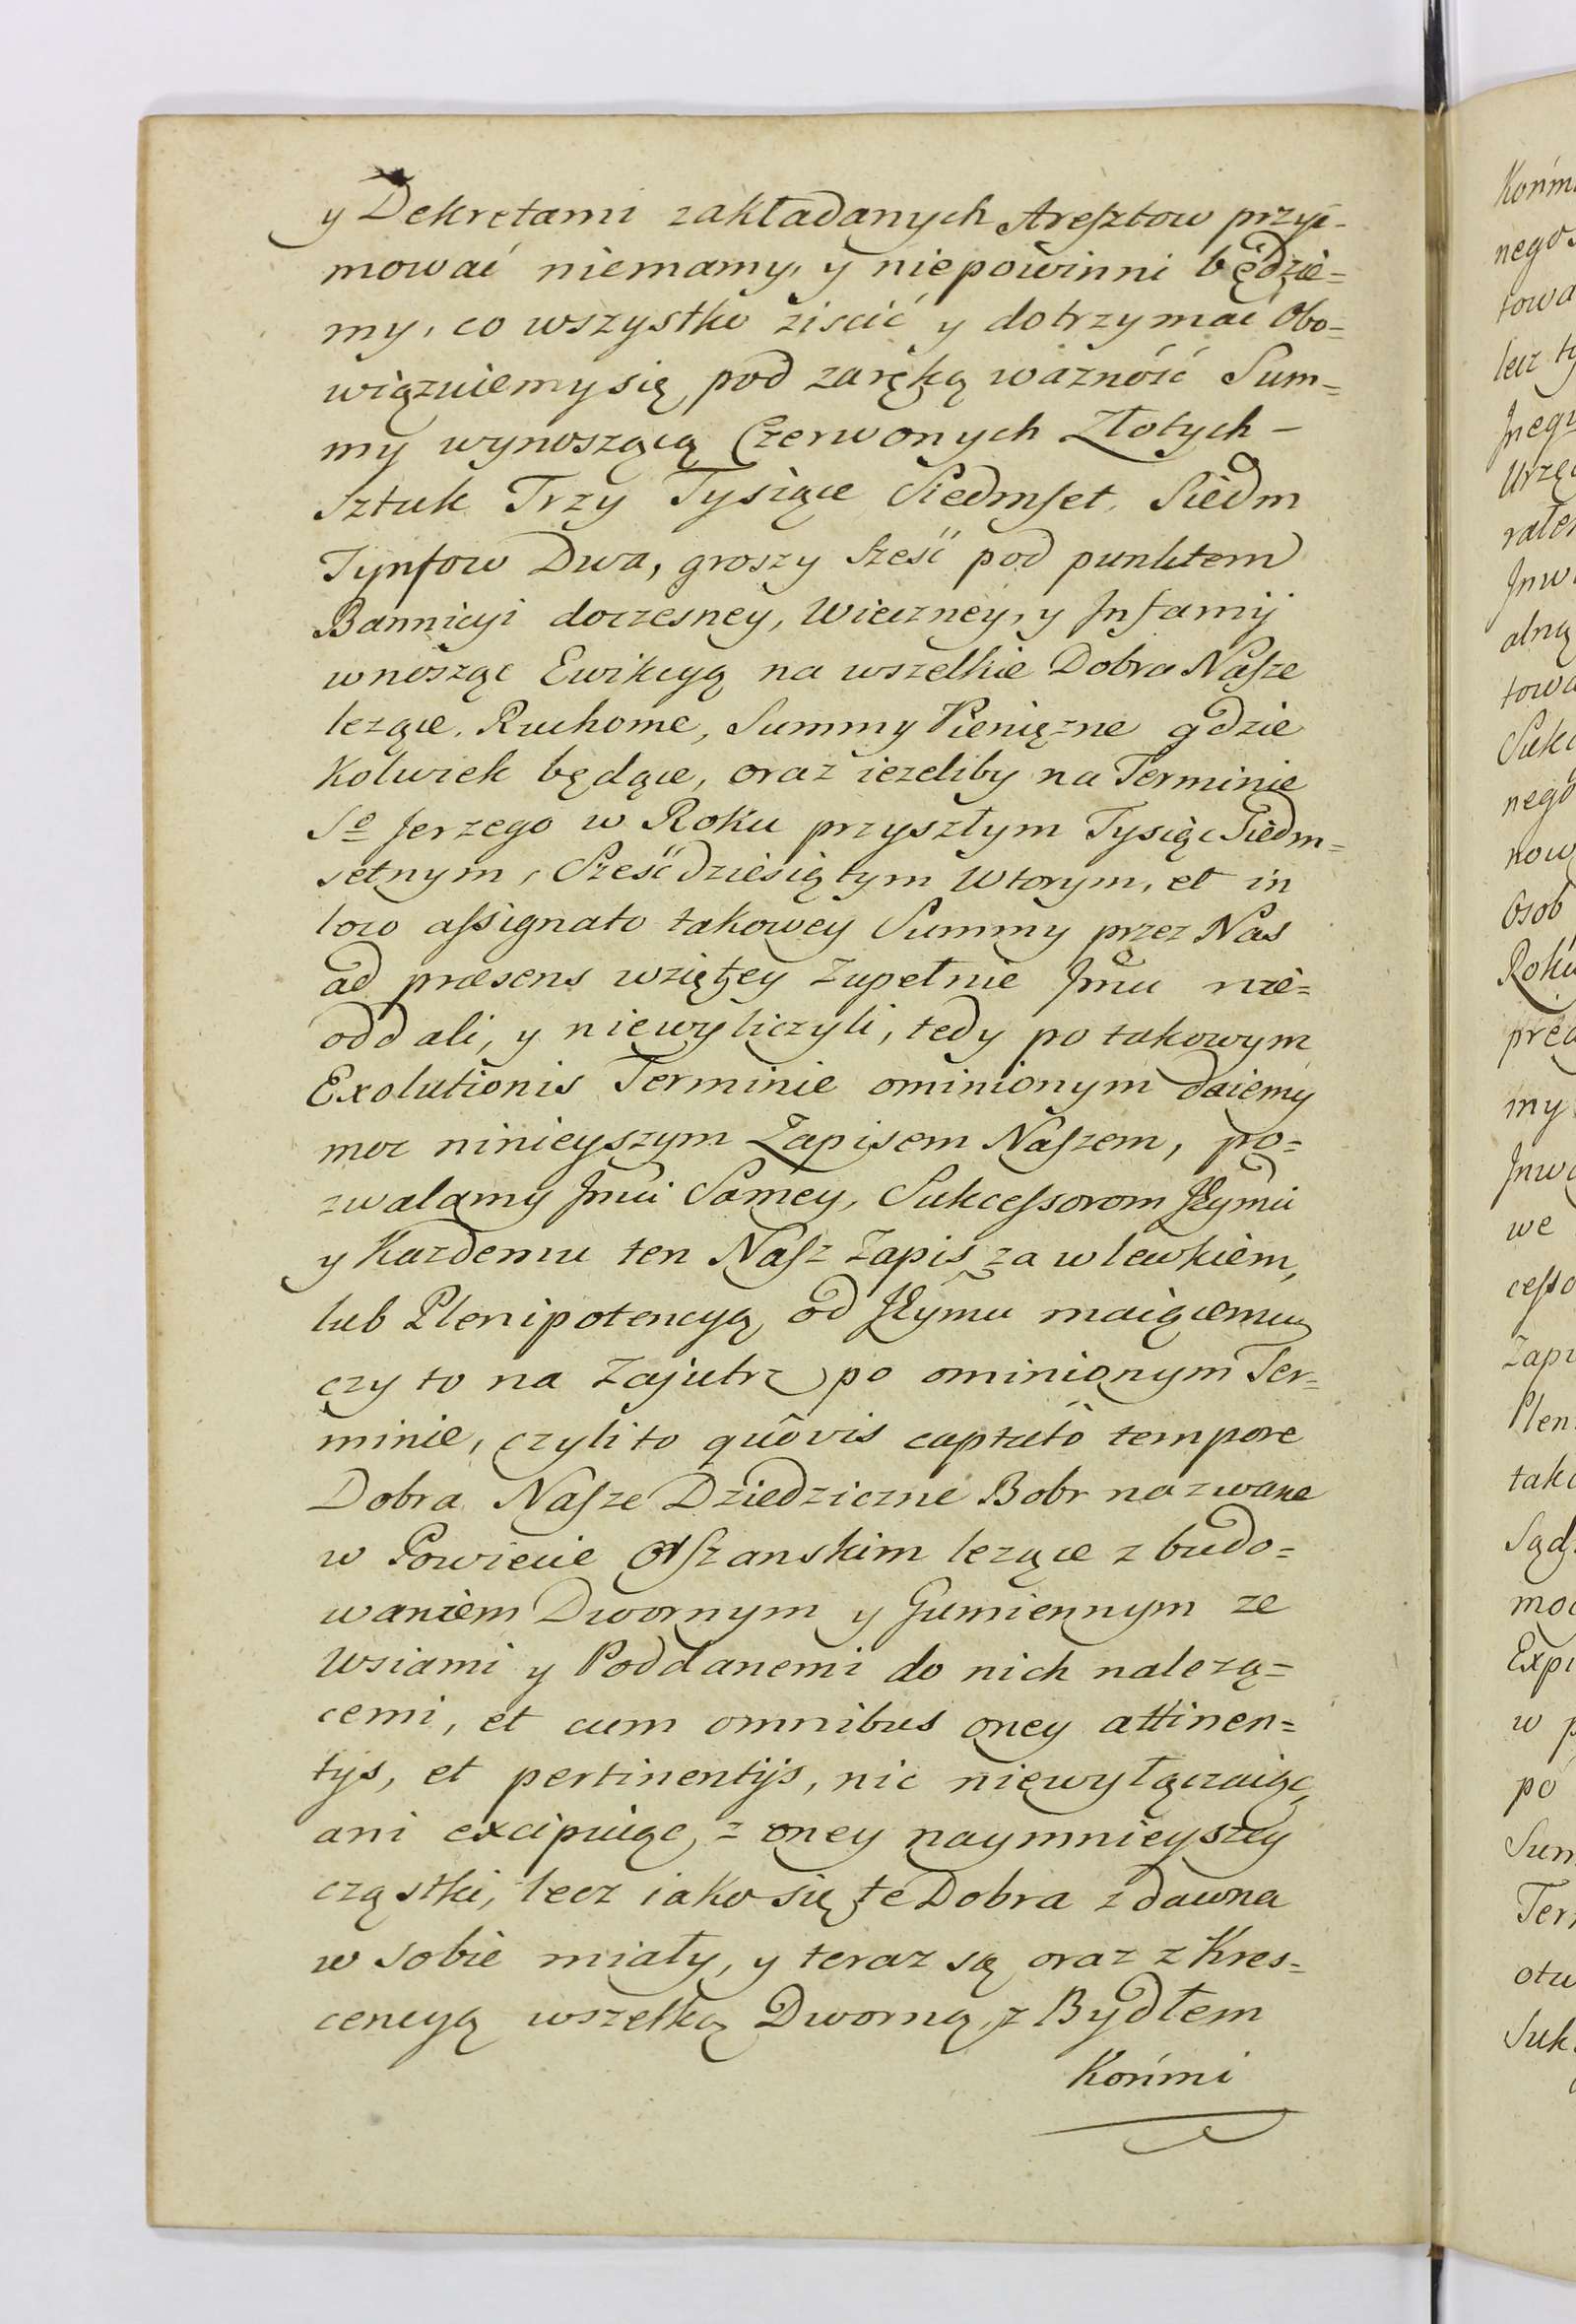 y Dekretami zakładanych Aresztow przyi-
mować niemamy, y niepowinni będzie=
my, co wszystko ziscić y dotrzymać Obo=
wiązuiemy się pod zaręką ważność Sum=
my wynoszącą Czerwonych Złotych -
Sztuk Trzy Tysiące Siedmset Siedm
Tynfow Dwa, groszy sześć pod punktem
Bannicyi doczesney, Wieczney, y Infamij
wnosząc Ewikcyą na wszelkie Dobra Nasze
leżące, Ruchome, Summy Pieniężne gdzie
Kolwiek będące, oraz ieżeliby na Terminie
So Jerzego w Roku przyszłym Tysiąc Siedm=
setnym, Sześćdziesiątym Wtorym, et in
loco assignato takowey Summy przez Nas
ad præsens wziętey Zupełnie Jmci nie=
oddali, y niewyliczyli, tedy po takowym
Exolutionis Terminie ominionym daiemy
moc ninieyszym Zapisem Naszem, po=
zwalamy Jmci Samey, Sukcessorom Jeymci
y Każdemu ten Nasz Zapis za wlewkiem,
lub Plenipotencyą od Jeymci maiącemu
czy to na Zajutrz po ominionym Ter=
minie, czyli to quôvis captatô tempore
Dobra Nasze Dziedziczne Bobr nazwane
w Powiecie Orszanskim leżące z budo=
waniem Dwornym y Gumiennym ze
Wsiami y Poddanemi do nich należą=
cemi, et cum omnibus oney attinen=
tijs, et pertinentijs, nic niewyłączaiąc,
ani excipuiąc, z oney naymnieyszey
cząstki, lecz iako się te Dobra zdawna
w sobie miały, y teraz są oraz z Kres=
cencyą wszelką Dworną, z Bydłem
Końmi
Końm
nego
towa
lecz ty
Jnegu
Urzę
rałe
Jnw
alną
towa
Sukc
nego
now
Osob
Roku
prę
my
Jnw
we
cesso
Zapi
Plen
tako
Sąd
moc
Exp
w p
po
Sum
Ter
otw
Suk